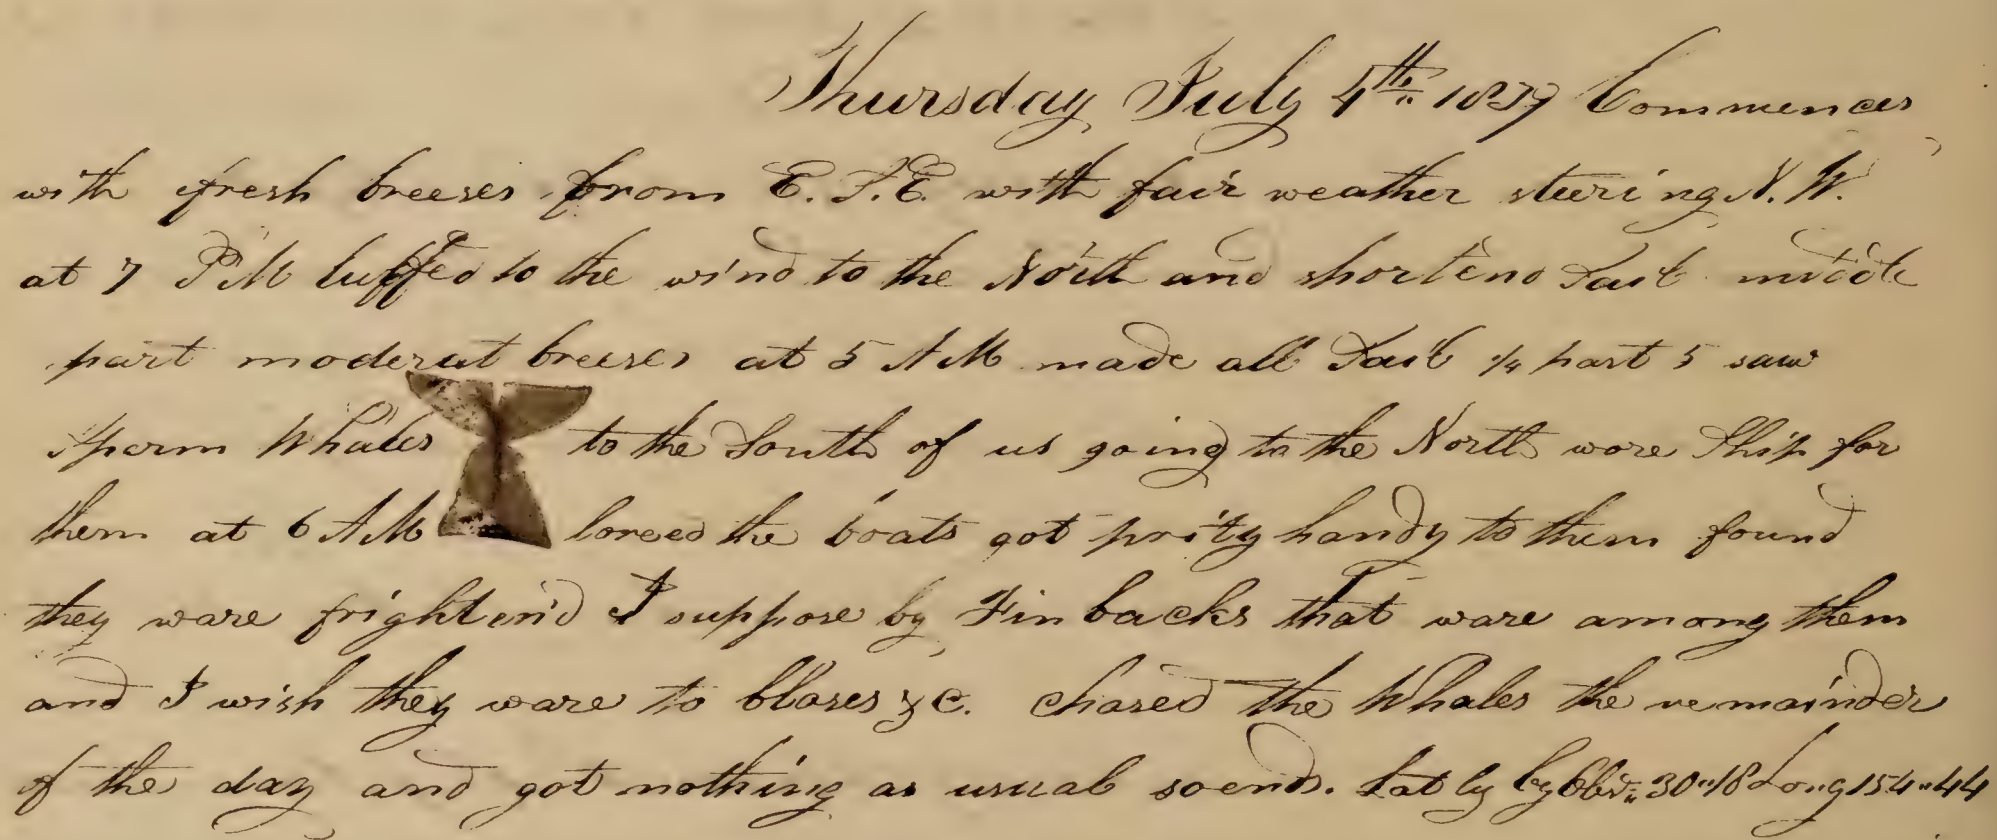 Thursday July 4th 1839 Commences
with fresh breeses from E.S.E. with fair weather steering N.W.
at 7 PM luffed to the wind to the North and shortend Sail middle
part moderat breeses at 5 AM made all Sail 1/4 past 5 saw
Sperm Whales to the South of us going to the North wore Ship for
them at 6 AM lowred the boats got prity handy to them found
they ware frightend I suppose by Finbacks that ware among them
and I wish they ware to blases &c. chased the Whales the remainder
of the day and got nothing as usual so ends. Lat by Obs 30"18 Long 154"44